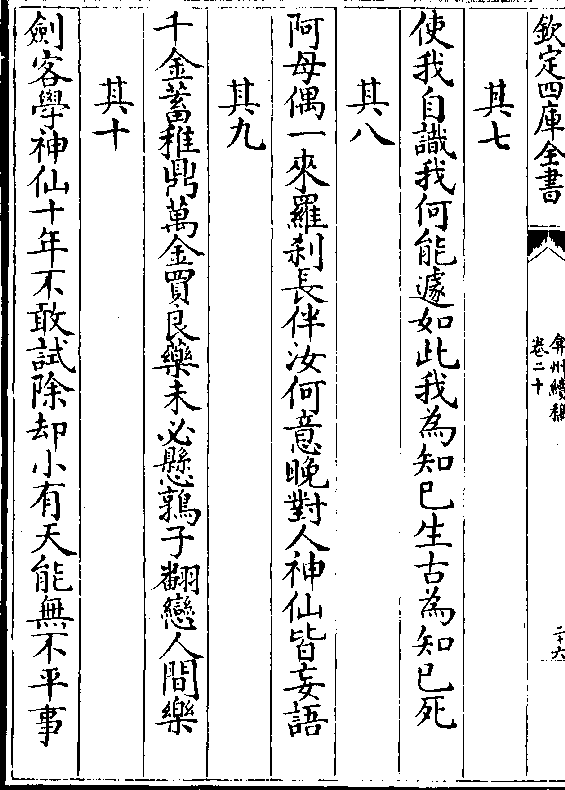 欽定四庫全書
弇州續稿
卷二十
二十六
其七
使我自識我何能遽如此我為知已生古為知已死
其八
阿母偶一來羅刹長伴汝何意晚對人神仙皆妄語
其九
千金蓄稚鼎萬金買良藥未必懸鶉子翻戀人間樂
其十
劍客學神仙十年不敢試除却小有天能無不平事